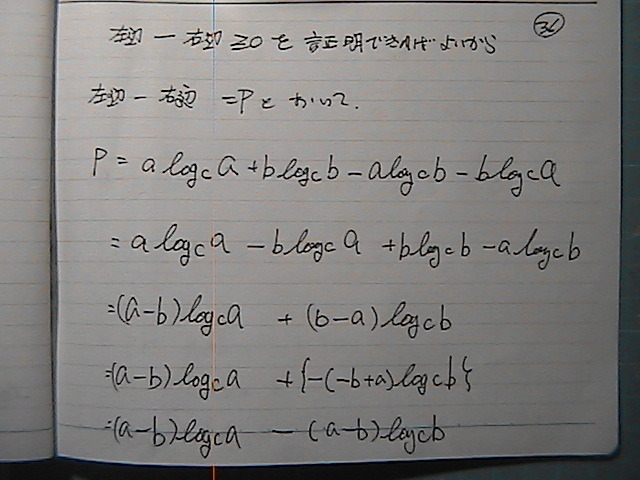 ㊱
左辺 − 右辺 ≧0 を 証明できればよいから
左辺 − 右辺 =P とかいて.
P = a log_c a + b log_c b − a log_c b − b log_c a
= a log_c a − b log_c a + b log_c b − a log_c b
=(a−b) log_c a + (b−a) log_c b
=(a−b) log_c a + {−(−b+a) log_c b}
=(a−b) log_c a − (a−b) log_c b